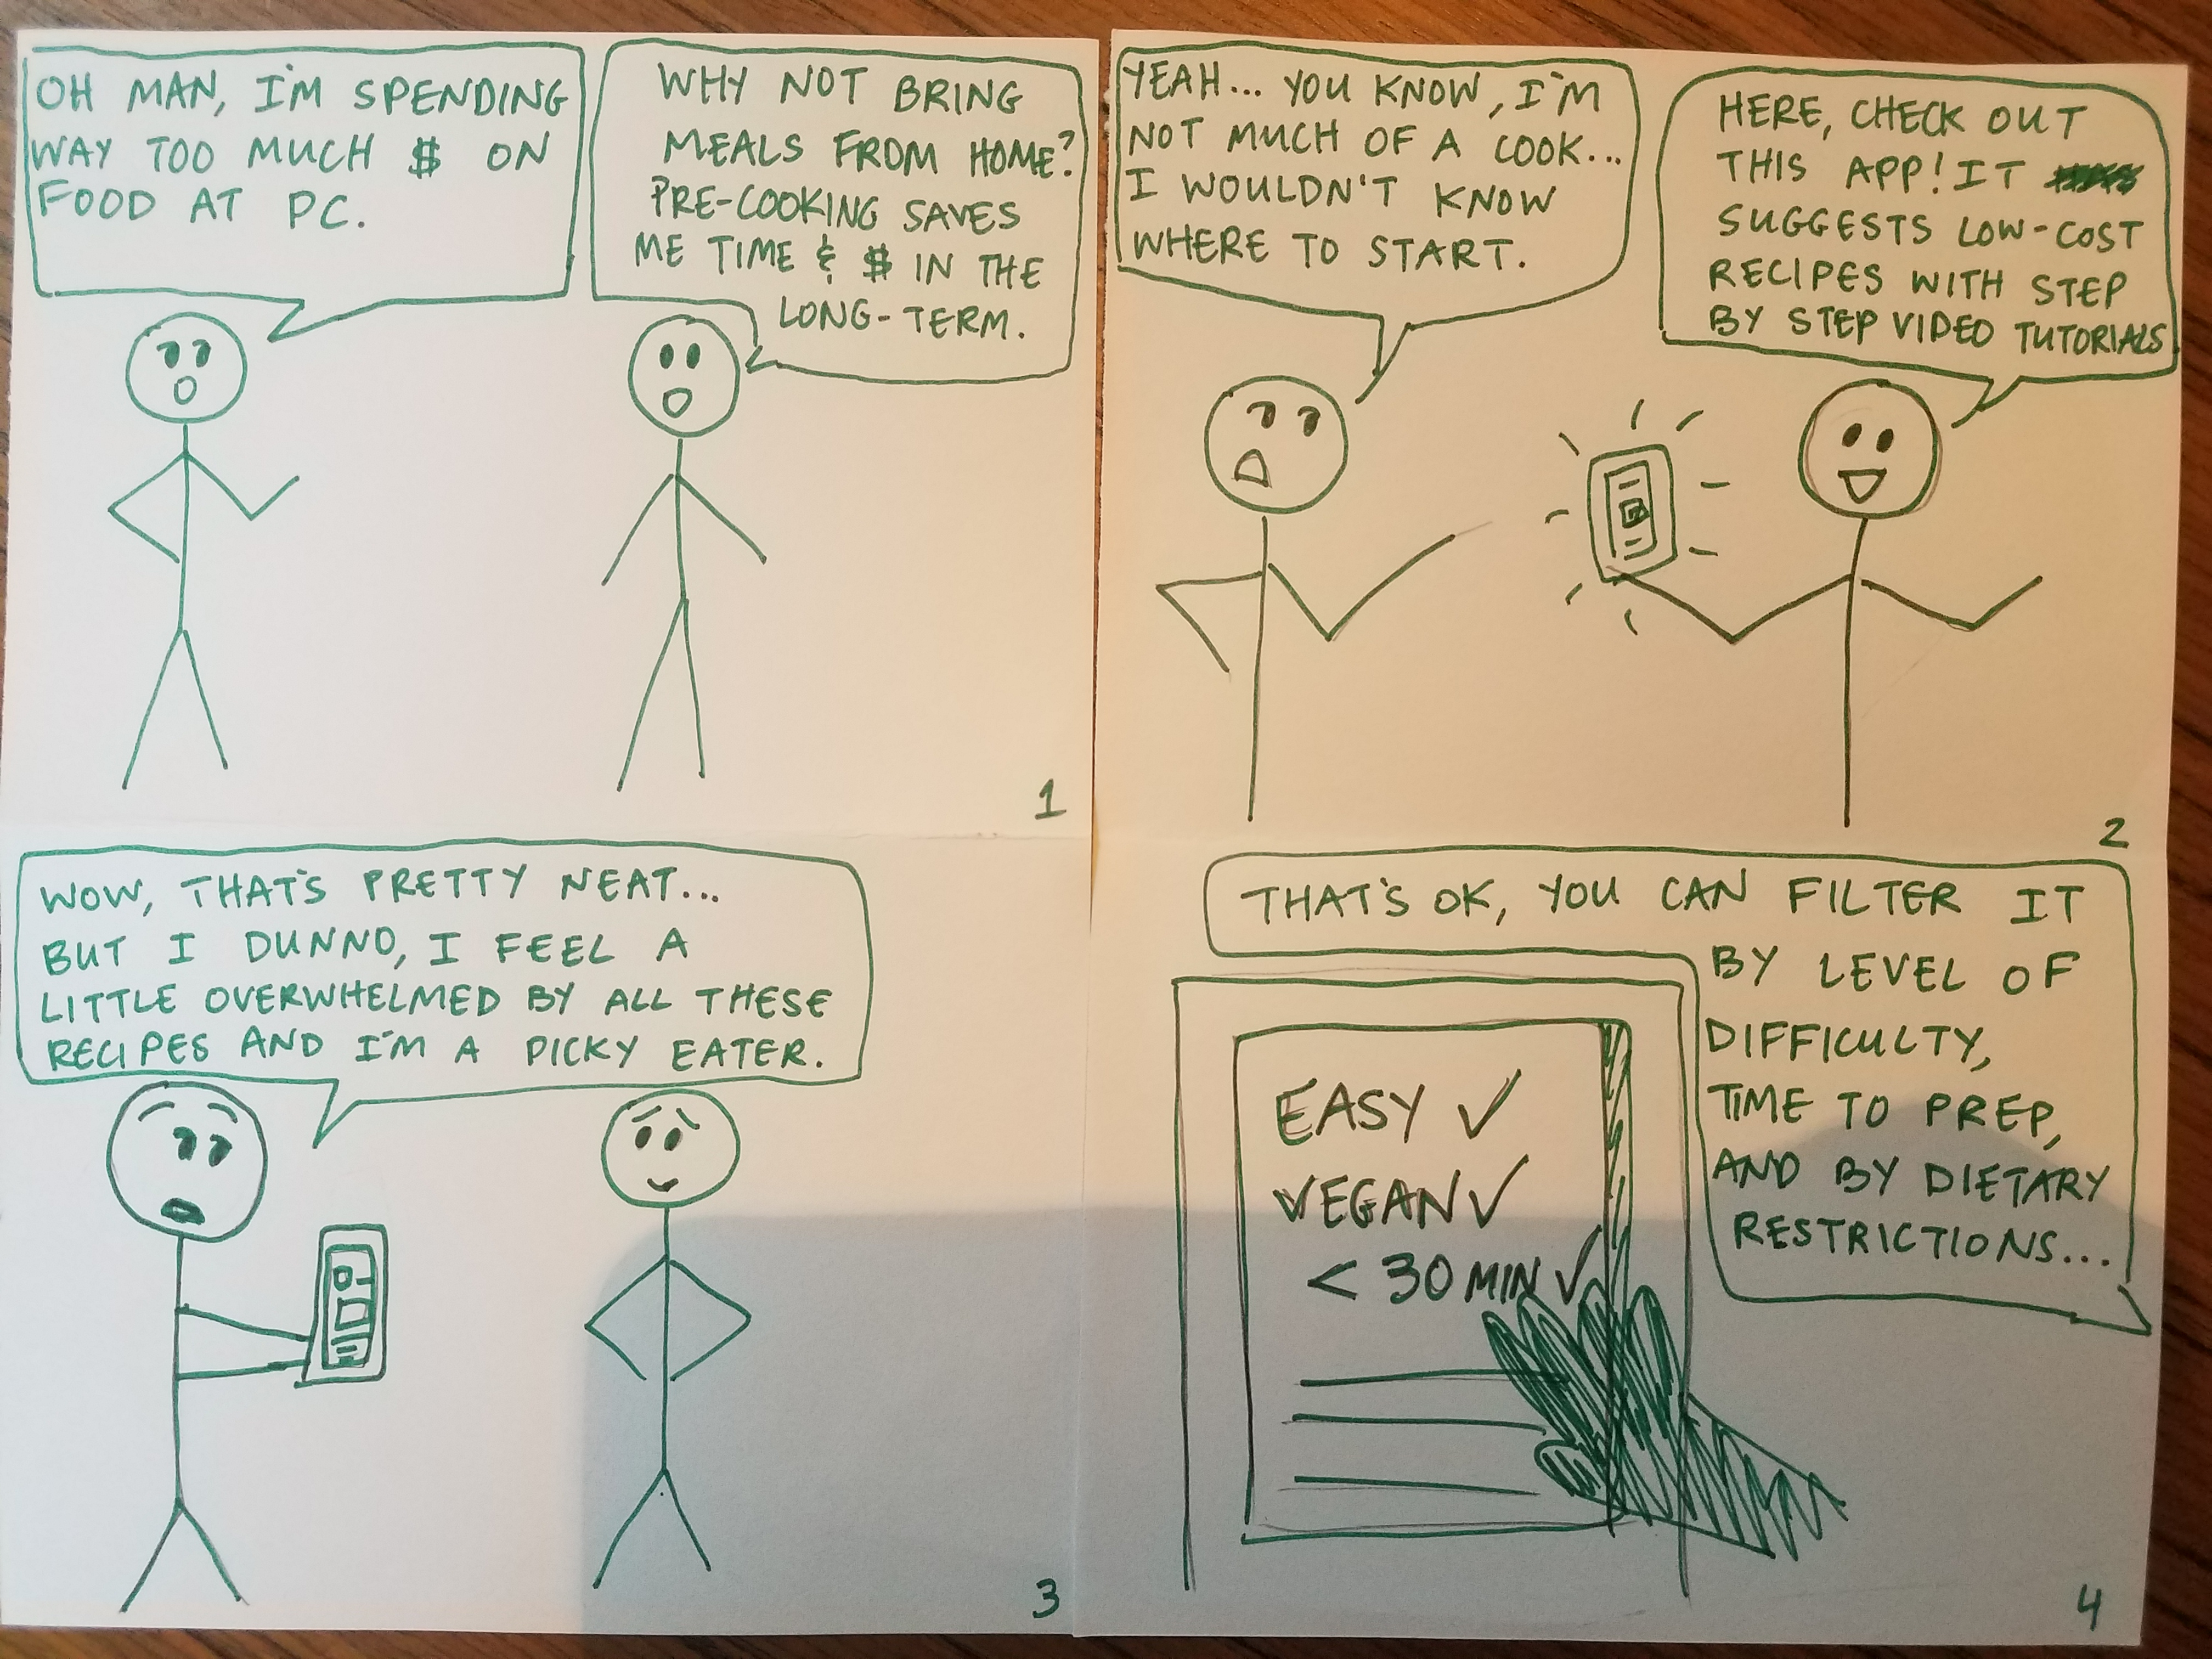 OH MAN, I'M SPENDING
WAY TOO MUCH $ ON
FOOD AT PC.
WHY NOT BRING
MEALS FROM HOME?
PRE-COOKING SAVES
ME TIME & $ IN THE
LONG-TERM.
1
YEAH... YOU KNOW, I'M
NOT MUCH OF A COOK...
I WOULDN'T KNOW
WHERE TO START.
HERE, CHECK OUT
THIS APP! IT
SUGGESTS LOW-COST
RECIPES WITH STEP
BY STEP VIDEO TUTORIALS
2
WOW, THAT'S PRETTY NEAT...
BUT I DUNNO, I FEEL A
LITTLE OVERWHELMED BY ALL THESE
RECIPES AND I'M A PICKY EATER.
3
THAT'S OK, YOU CAN FILTER IT
BY LEVEL OF
DIFFICULTY,
TIME TO PREP,
AND BY DIETARY
RESTRICTIONS...
EASY ✓
VEGAN ✓
< 30 MIN ✓
4